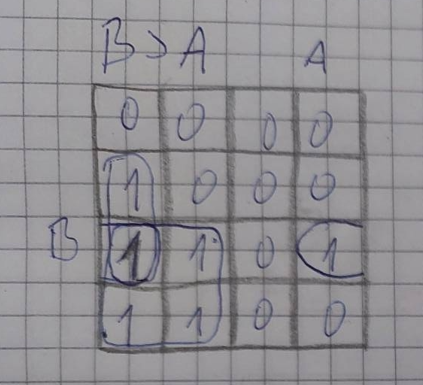 B > A A
0 0 0 0
1 0 0 0
B 1 1 0 1
1 1 0 0